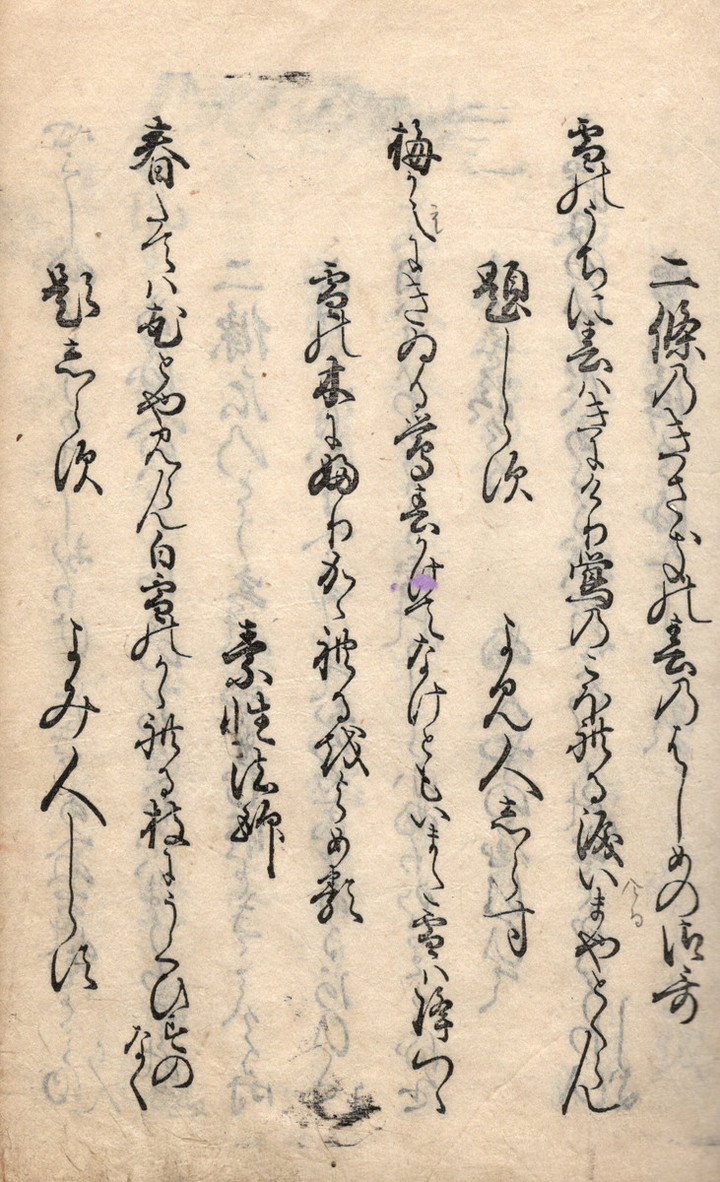 二條のきさきの春のはしめの御哥
雪のうちに春はきにけり鶯のこほれる涙いまやとくらん
題しらす
よみ人しらす
梅かえにきゐる鶯春かけてなけともいまた雪は降つゝ
雪の木にふりかゝれるをよめる
素性法師
春たては花とや見らん白雪のかゝれる枝にうくひすの
なく
題しらす
よみ人しらす